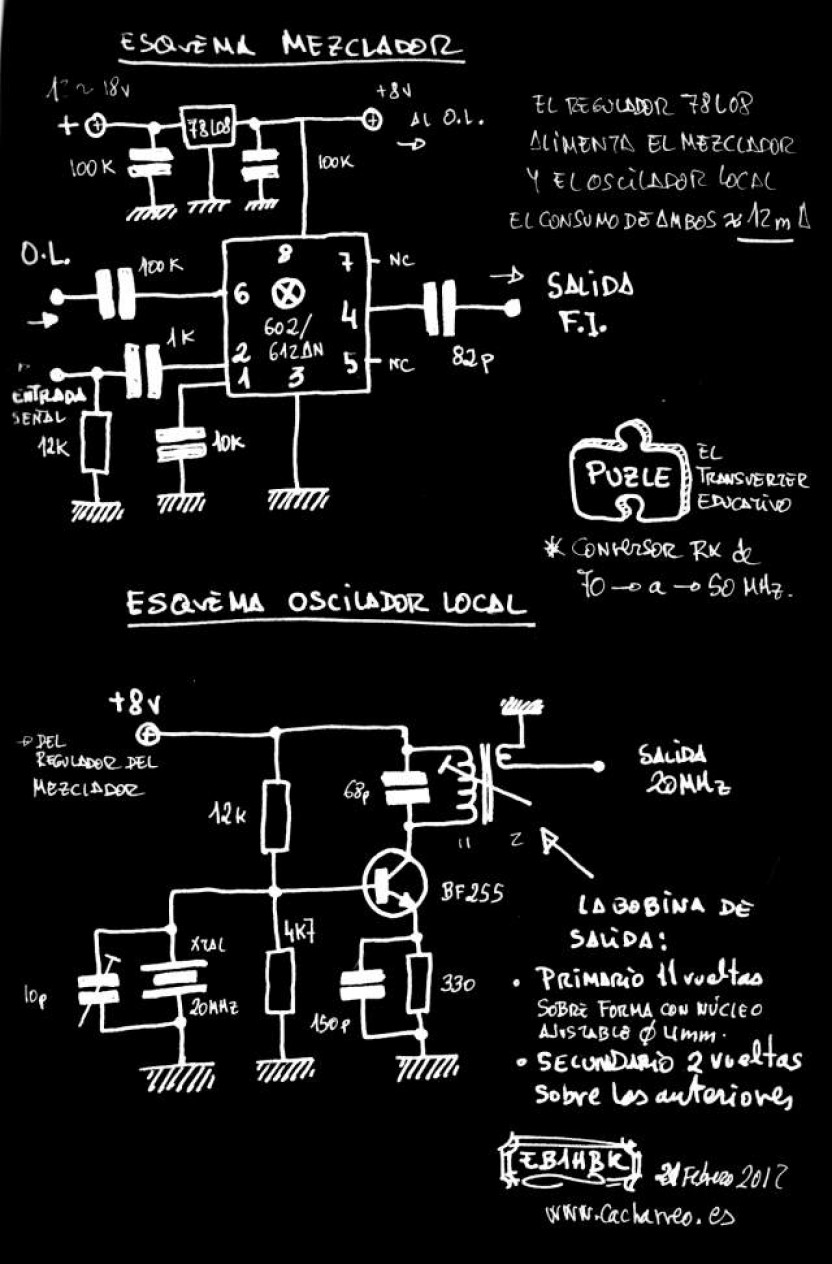 ESQUEMA MEZCLADOR
12~18V
+8V
+
78L08
AL O.L.
100K
100K
EL REGULADOR 78L08
ALIMENTA EL MEZCLADOR
Y EL OSCILADOR LOCAL
EL CONSUMO DE AMBOS ≈ 12mA
O.L.
100K
8
7
NC
6
602/
612AN
4
SALIDA
F.I.
82p
1K
2
5
NC
1
3
ENTRADA
SEÑAL
12K
10K
PUZLE
EL
TRANSVERTER
EDUCATIVO
* CONVERSOR RX de
70 → a → 50 MHz.
ESQUEMA OSCILADOR LOCAL
+8V
→ DEL
REGULADOR DEL
MEZCLADOR
12K
68p
SALIDA
20MHz
11
2
BF255
XTAL
4K7
10p
20MHz
150p
330
LA BOBINA DE
SALIDA:
• PRIMARIO 11 vueltas
SOBRE FORMA CON NÚCLEO
AJUSTABLE Ø 4mm.
• SECUNDARIO 2 vueltas
Sobre las anteriores
EB1HBK
Febrero 2012
www.Cacharreo.es